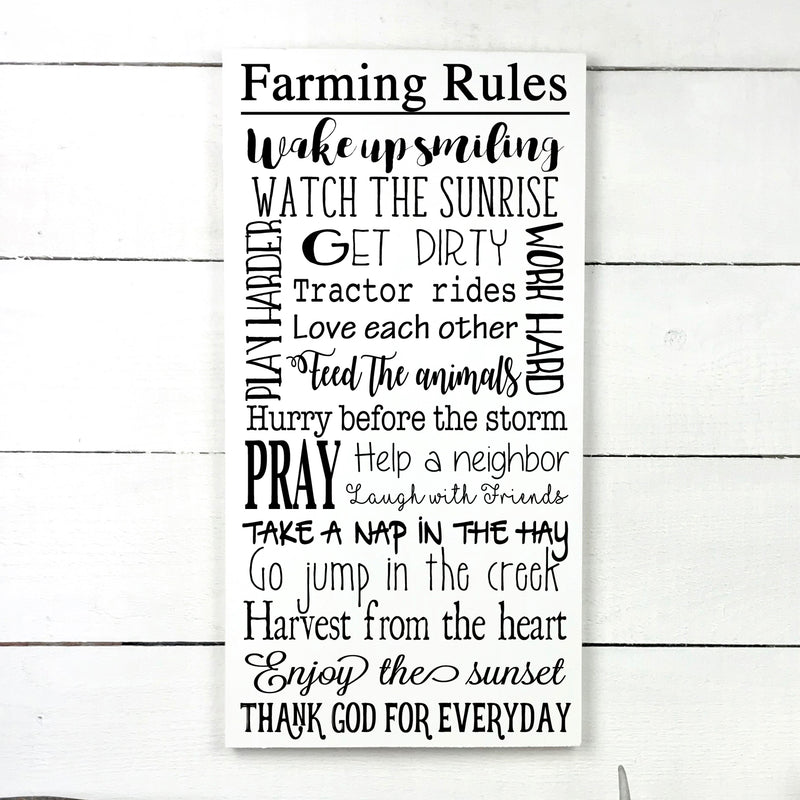 Farming Rules
Wake up smiling
WATCH THE SUNRISE
PLAY HARDER
GET DIRTY
WORK HARD
Tractor rides
Love each other
Feed The animals
Hurry before the storm
PRAY
Help a neighbor
Laugh with Friends
TAKE A NAP iN THE HAy
Go jump in the creek
Harvest from the heart
Enjoy the sunset
THANK GOD FOR EVERYDAY